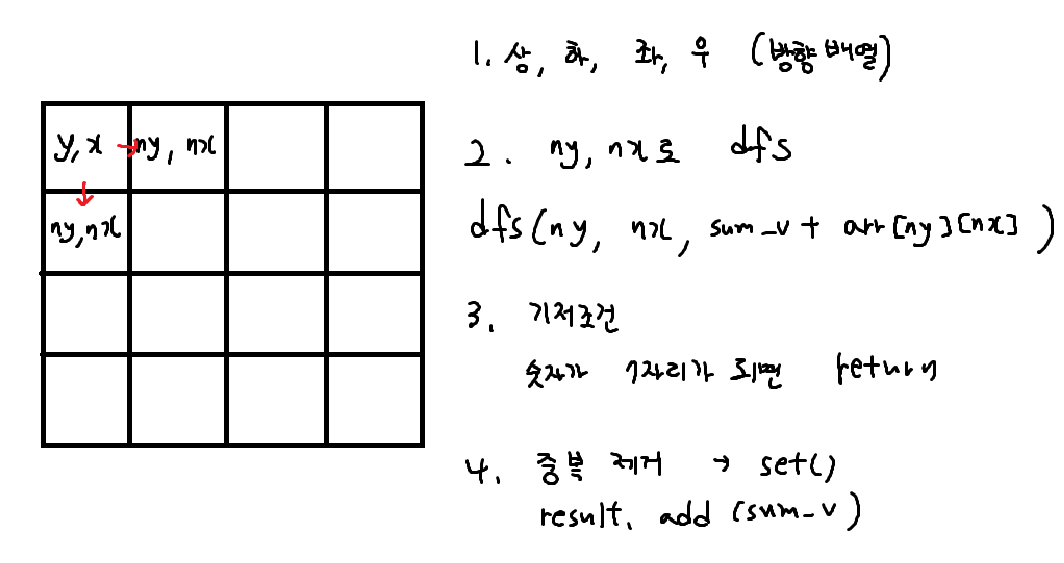 y, x ny, nx
ny, nx
1. 상, 하, 좌, 우 (방향 배열)
2. ny, nx로 dfs
dfs(ny, nx, sum_v + arr[ny][nx] )
3. 기저조건
숫자가 7자리가 되면 return
4. 중복 제거 → set()
result. add (sum_v)